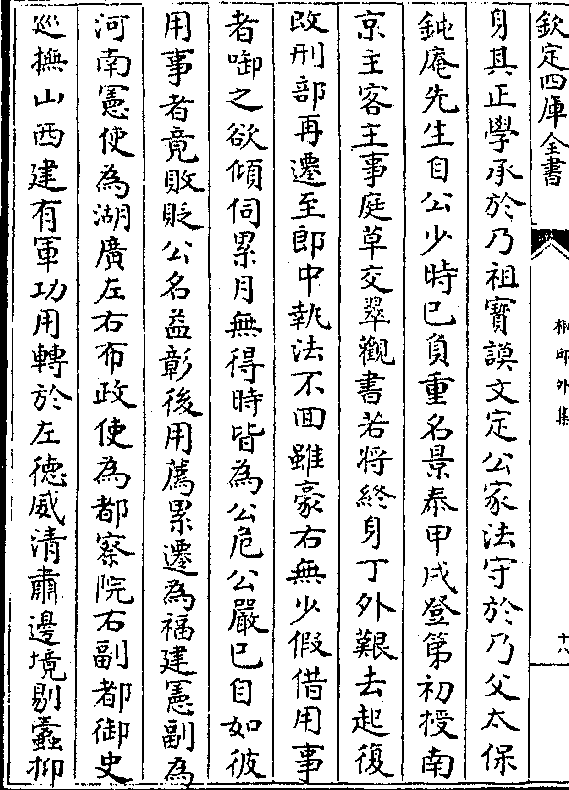 欽定四庫全書
桐邱外集
十八
身其正學承於乃祖寳謨文定公家法守於乃父太保
鈍庵先生自公少時已負重名景泰甲戌登第初授南
京主客主事庭草交翠觀書若將終身丁外艱去起復
改刑部再遷至郎中執法不回雖豪右無少假借用事
者啣之欲傾伺累月無得時皆為公危公嚴已自如彼
用事者竟敗貶公名益彰後用薦累遷為福建憲副為
河南憲使為湖廣左右布政使為都察院右副都御史
巡撫山西建有軍功用轉於左德威清肅邊境剔蠧抑